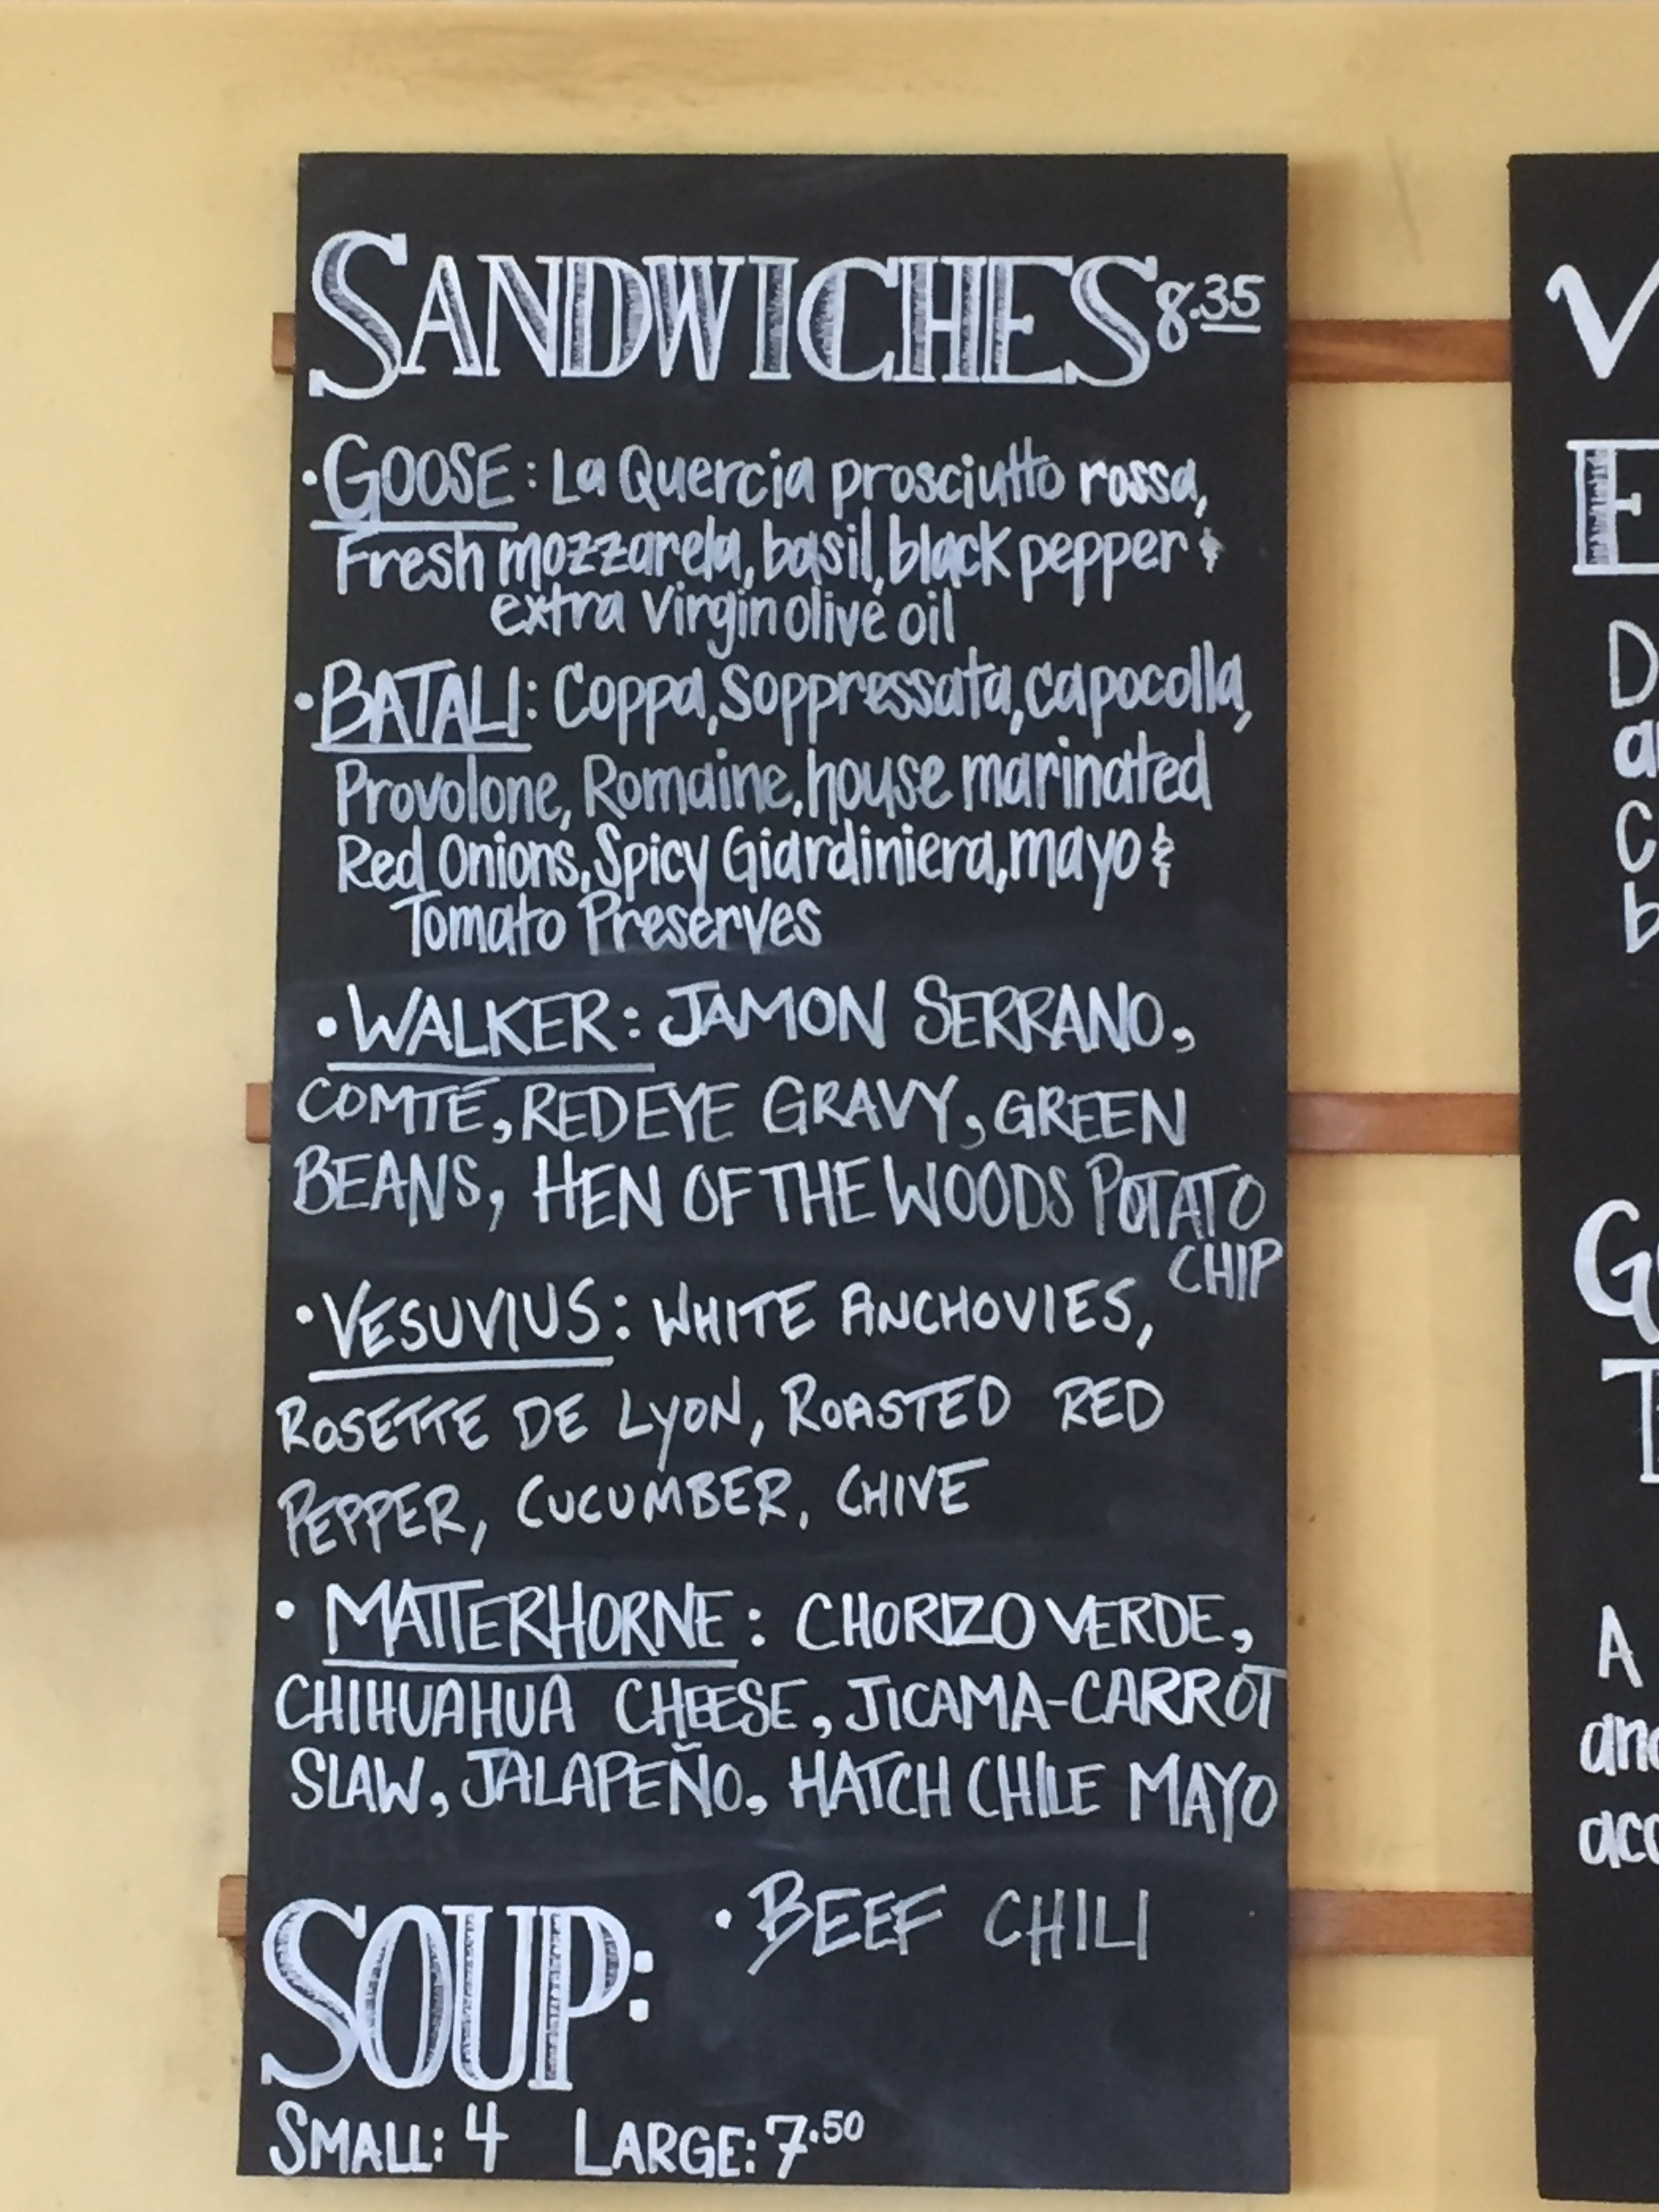 SANDWICHES 8.35
• GOOSE: La Quercia prosciutto rossa,
Fresh mozzarela, basil, black pepper &
extra virgin olive oil
• BATALI: Coppa, Soppressata, capocolla,
Provolone, Romaine, house marinated
Red Onions, Spicy Giardiniera, mayo &
Tomato Preserves
• WALKER: JAMON SERRANO,
COMTÉ, RED EYE GRAVY, GREEN
BEANS, HEN OF THE WOODS POTATO
CHIP
• VESUVIUS: WHITE ANCHOVIES,
ROSETTE DE LYON, ROASTED RED
PEPPER, CUCUMBER, CHIVE
• MATTERHORNE: CHORIZO VERDE,
CHIHUAHUA CHEESE, JICAMA-CARROT
SLAW, JALAPEÑO, HATCH CHILE MAYO
SOUP: • BEEF CHILI
SMALL: 4 LARGE: 7.50